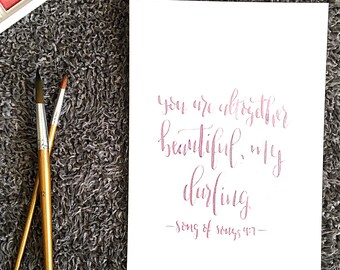 you are altogether
beautiful, my
darling
- song of songs 4:7 -